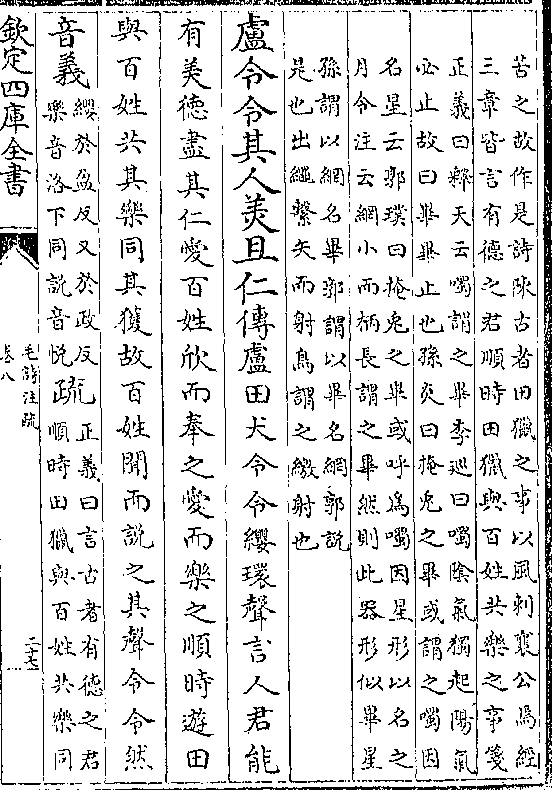 苦之故作是詩陳古者田獵之事以風刺襄公焉經
三章皆言有德之君順時田獵與百姓共樂之事箋
正義曰釋天云噣謂之畢李廵曰噣隂氣獨起陽氣
必止故曰畢畢止也孫炎曰掩兎之畢或謂之噣因
名星云郭璞曰掩兎之畢或呼為噣因星形以名之
月令注云網小而柄長謂之畢然則此器形似畢星
孫謂以網名畢郭謂以畢名網郭說
是也出繩繫矢而射鳥謂之繳射也
盧令令其人美且仁傳盧田犬令令纓環聲言人君能
有美德盡其仁愛百姓欣而奉之愛而樂之順時遊田
與百姓共其樂同其獲故百姓聞而說之其聲令令然
音義
纓於盈反又於政反
樂音洛下同說音悅
疏
正義曰言古者有德之君
順時田獵與百姓共樂同
欽定四庫全書
毛詩注疏
卷八
二十七